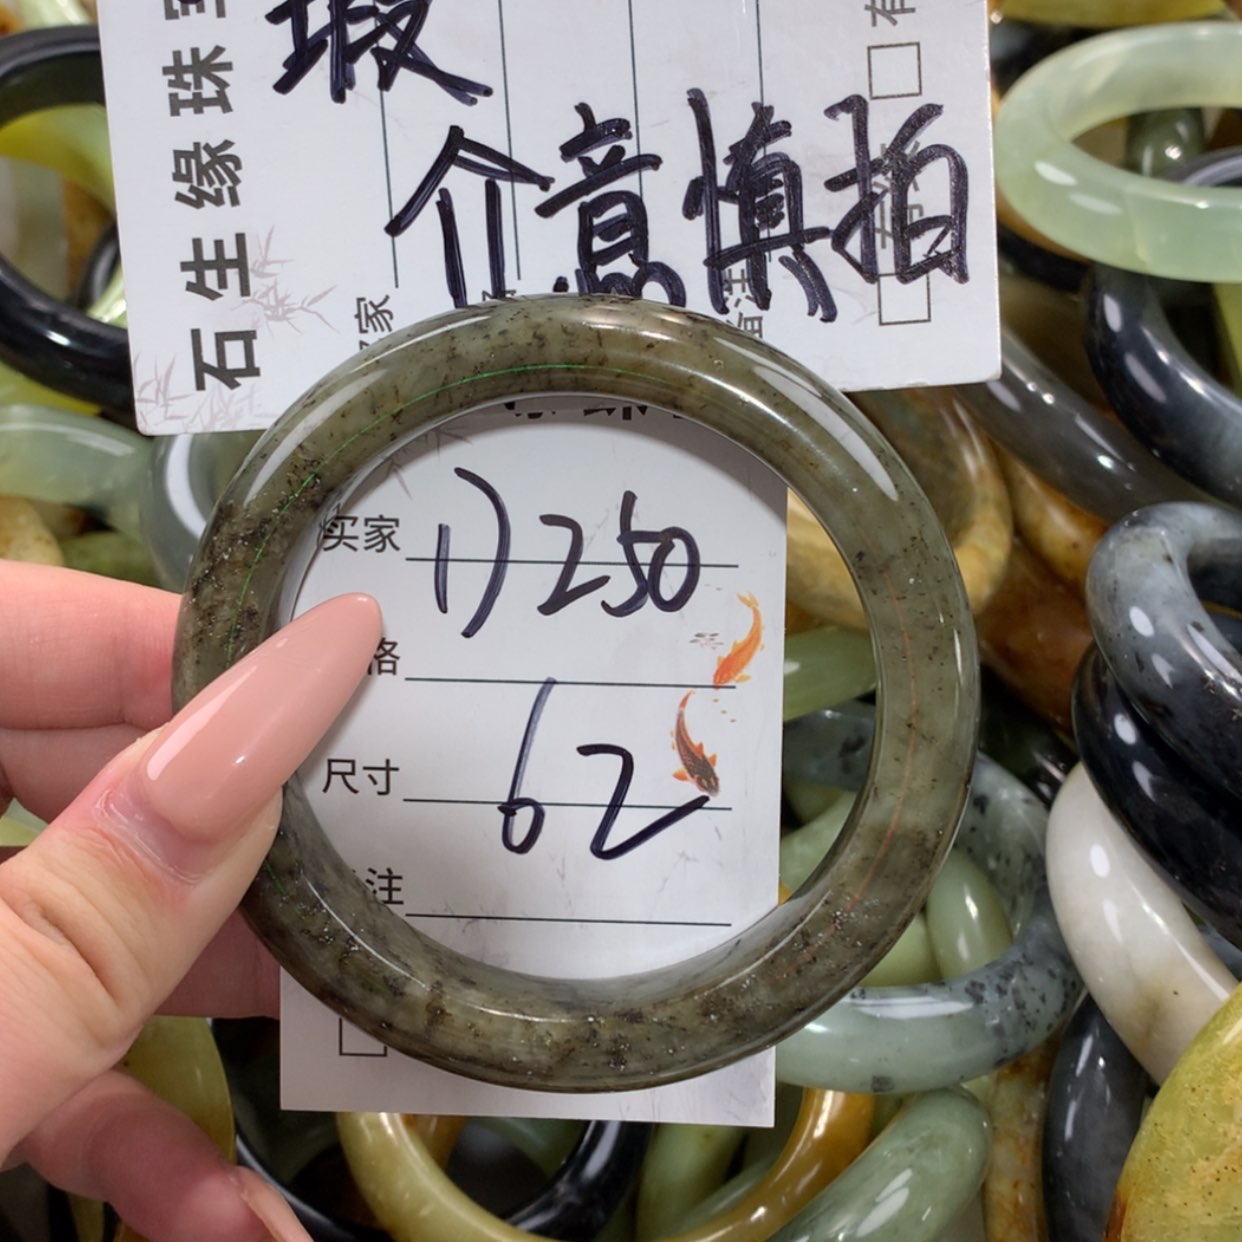 瑕
介意慎拍
石生缘珠宝
买家
1) 250
格
尺寸
62
注
家
有